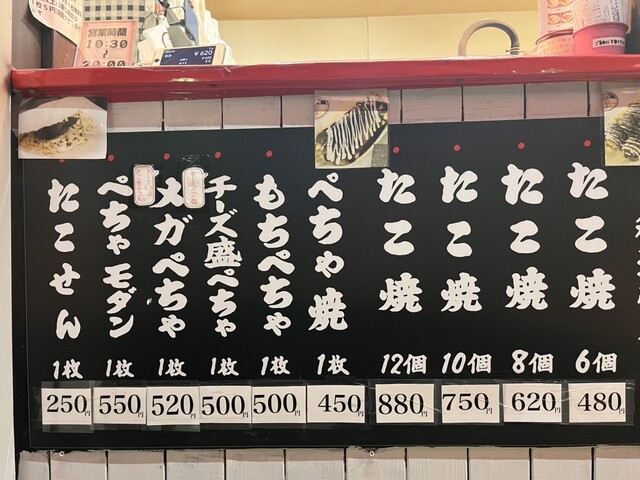 営業時間
10:30
〜
20:00
¥620
たこ焼
6個
480円
たこ焼
8個
620円
たこ焼
10個
750円
たこ焼
12個
880円
ぺちゃ焼
1枚
450円
もちぺちゃ
1枚
500円
チーズ盛ぺちゃ
1枚
500円
メガぺちゃ
1枚
520円
ぺちゃモダン
1枚
550円
たこせん
1枚
250円